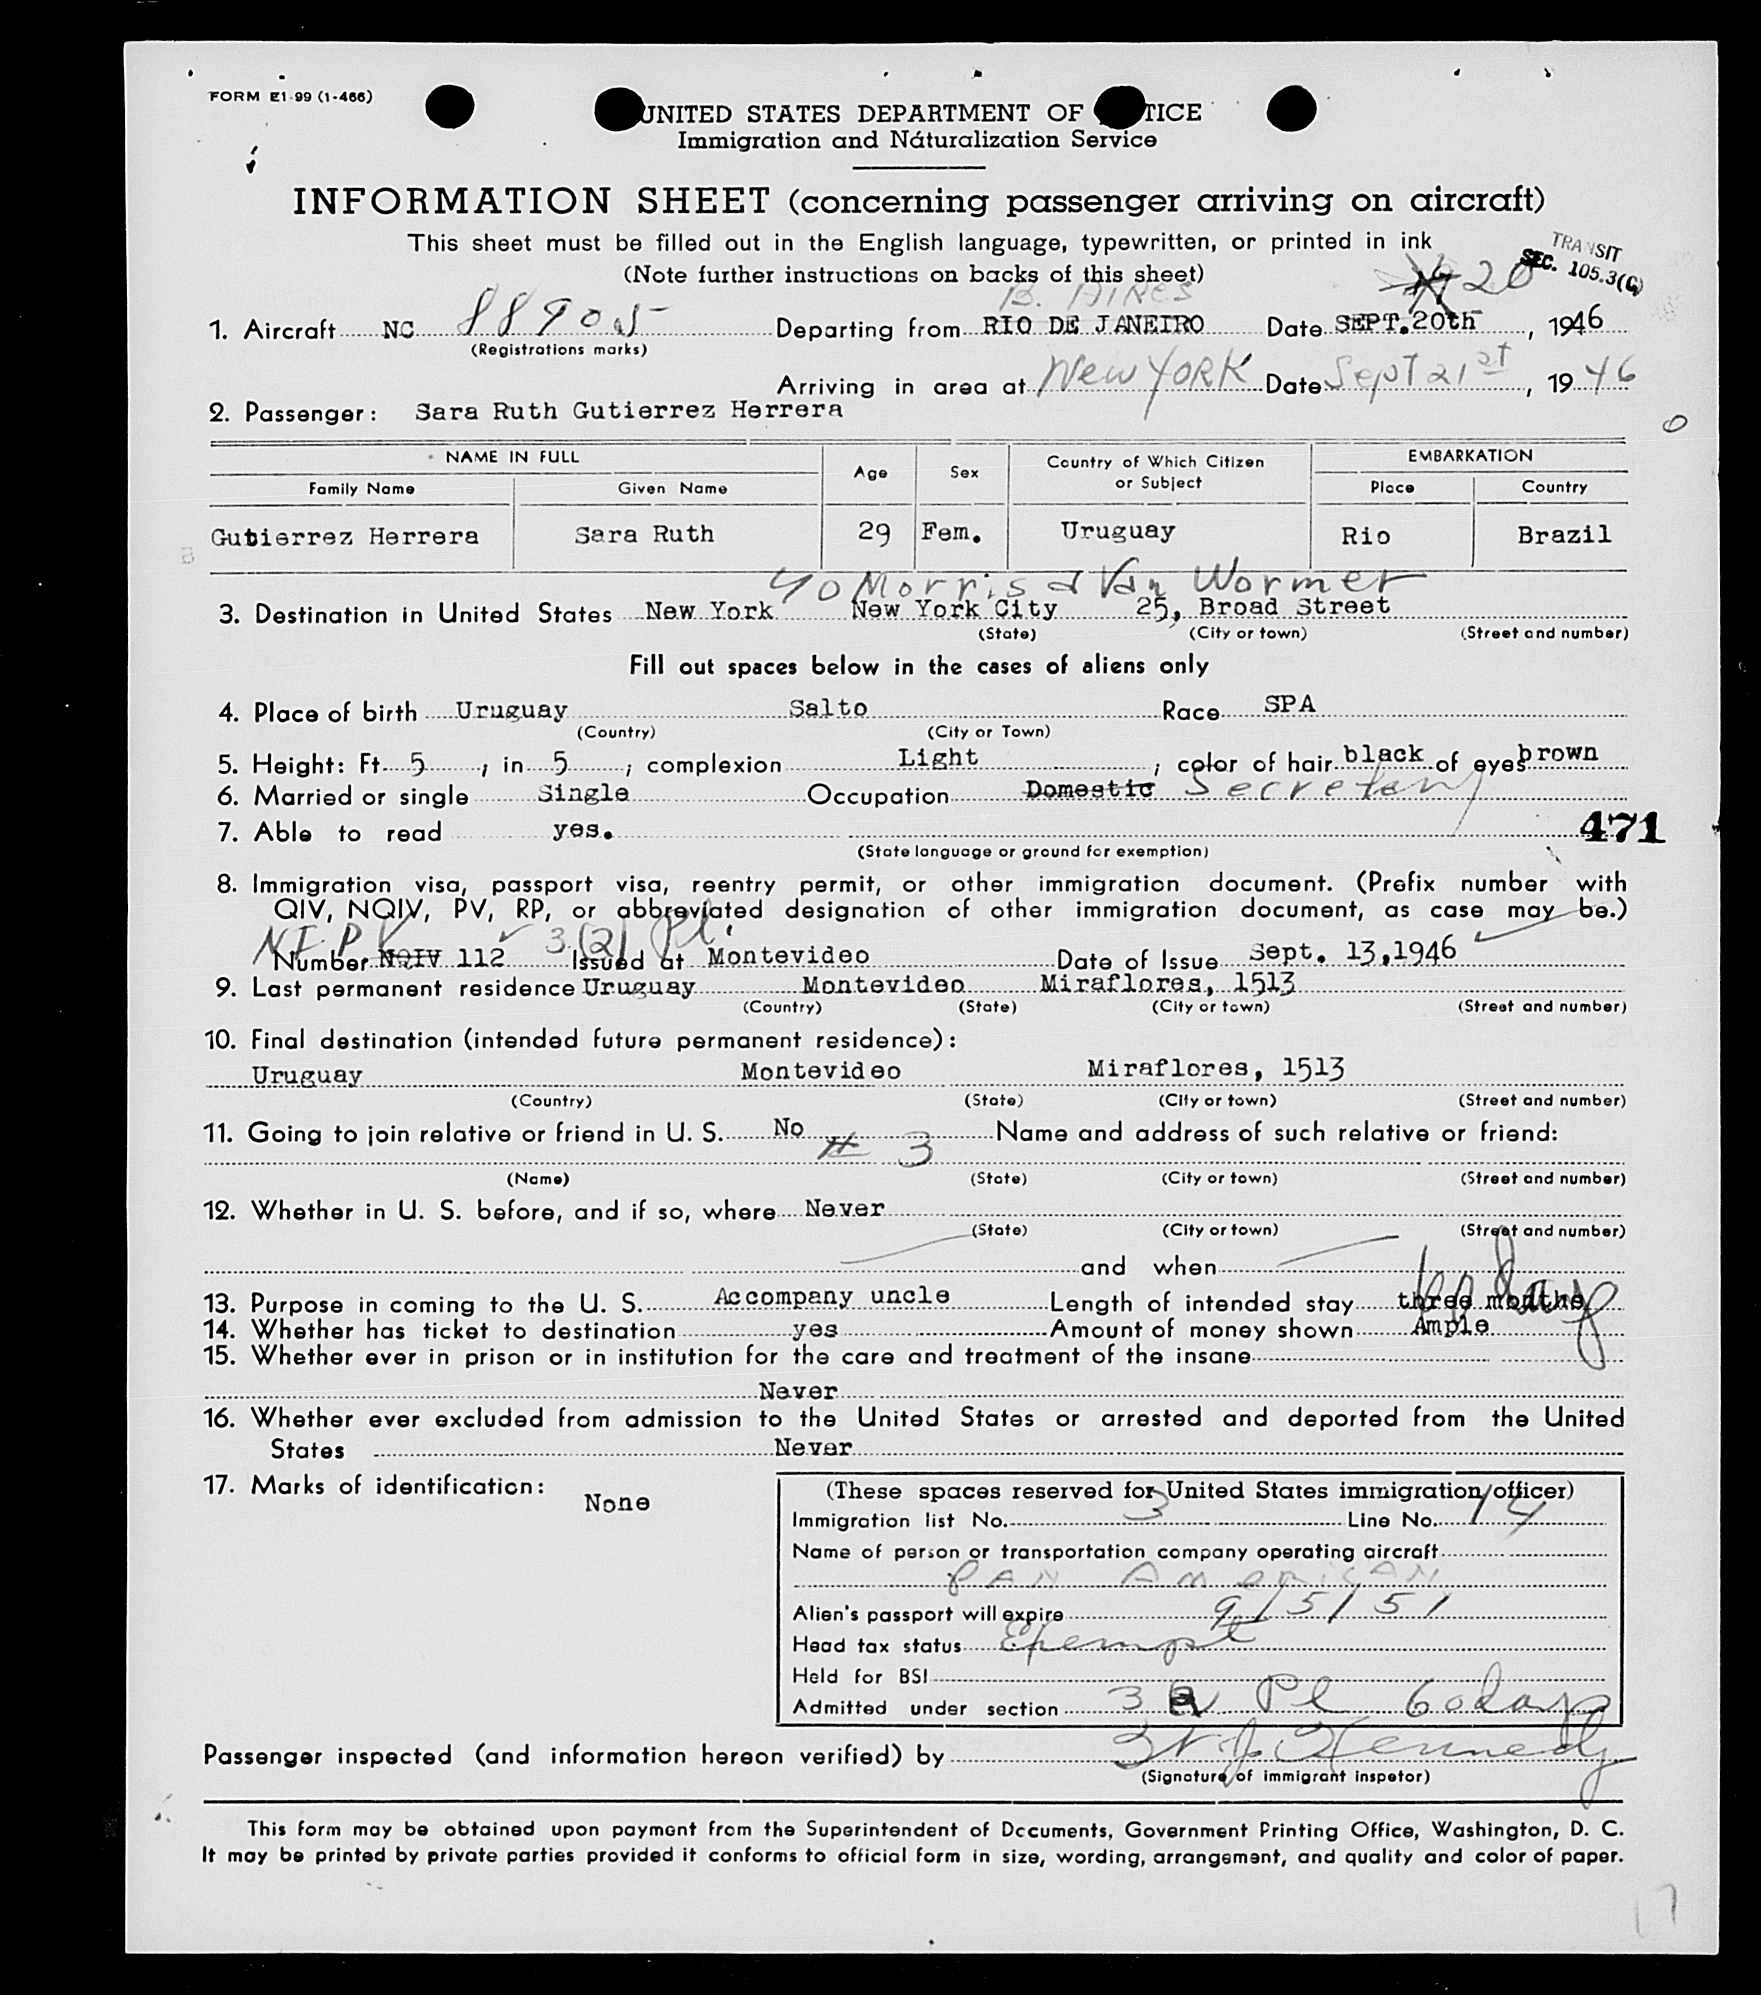 FORM E1-99 (1-466)
UNITED STATES DEPARTMENT OF TICE
Immigration and Naturalization Service
INFORMATION SHEET (concerning passenger arriving on aircraft)
This sheet must be filled out in the English language, typewritten, or printed in ink
(Note further instructions on backs of this sheet)
TRANSIT
SEC. 105.3(C)
B. AIRES
20
1. Aircraft NC 88905 Departing from RIO DE JANEIRO Date SEPT. 20th, 1946
(Registrations marks)
Arriving in area at New YORK Date Sept 21st, 1946
2. Passenger: Sara Ruth Gutierrez Herrera
NAME IN FULL Age Sex Country of Which Citizen or Subject EMBARKATION
Family Name Given Name Place Country
Gutierrez Herrera Sara Ruth 29 Fem. Uruguay Rio Brazil
Morris & Van Wormer
3. Destination in United States New York New York City 25, Broad Street
(State) (City or town) (Street and number)
Fill out spaces below in the cases of aliens only
4. Place of birth Uruguay Salto Race SPA
(Country) (City or Town)
5. Height: Ft. 5, in 5; complexion Light; color of hair black of eyes brown
6. Married or single Single Occupation Domestic Secretary
7. Able to read yes.
471
(State language or ground for exemption)
8. Immigration visa, passport visa, reentry permit, or other immigration document. (Prefix number with
QIV, NQIV, PV, RP, or abbreviated designation of other immigration document, as case may be.)
3(2) Pl.
Number NQIV 112 Issued at Montevideo Date of Issue Sept. 13,1946
9. Last permanent residence Uruguay Montevideo Miraflores, 1513
(Country) (State) (City or town) (Street and number)
10. Final destination (intended future permanent residence):
Uruguay Montevideo Miraflores, 1513
(Country) (State) (City or town) (Street and number)
11. Going to join relative or friend in U. S. No Name and address of such relative or friend:
# 3
(Name) (State) (City or town) (Street and number)
12. Whether in U. S. before, and if so, where Never
(State) (City or town) (Street and number)
and when
13. Purpose in coming to the U. S. Accompany uncle Length of intended stay three months 60 days
14. Whether has ticket to destination yes Amount of money shown Ample
15. Whether ever in prison or in institution for the care and treatment of the insane
Never
16. Whether ever excluded from admission to the United States or arrested and deported from the United
States Never
17. Marks of identification: None
(These spaces reserved for United States immigration officer)
Immigration list No. 3 Line No. 14
Name of person or transportation company operating aircraft
PAN AMERICAN
Alien's passport will expire 9/5/51
Head tax status Exempt
Held for BSI
Admitted under section 3 2 Pl 60 days
Passenger inspected (and information hereon verified) by J. Kennedy
(Signature of immigrant inspetor)
This form may be obtained upon payment from the Superintendent of Documents, Government Printing Office, Washington, D. C.
It may be printed by private parties provided it conforms to official form in size, wording, arrangement, and quality and color of paper.